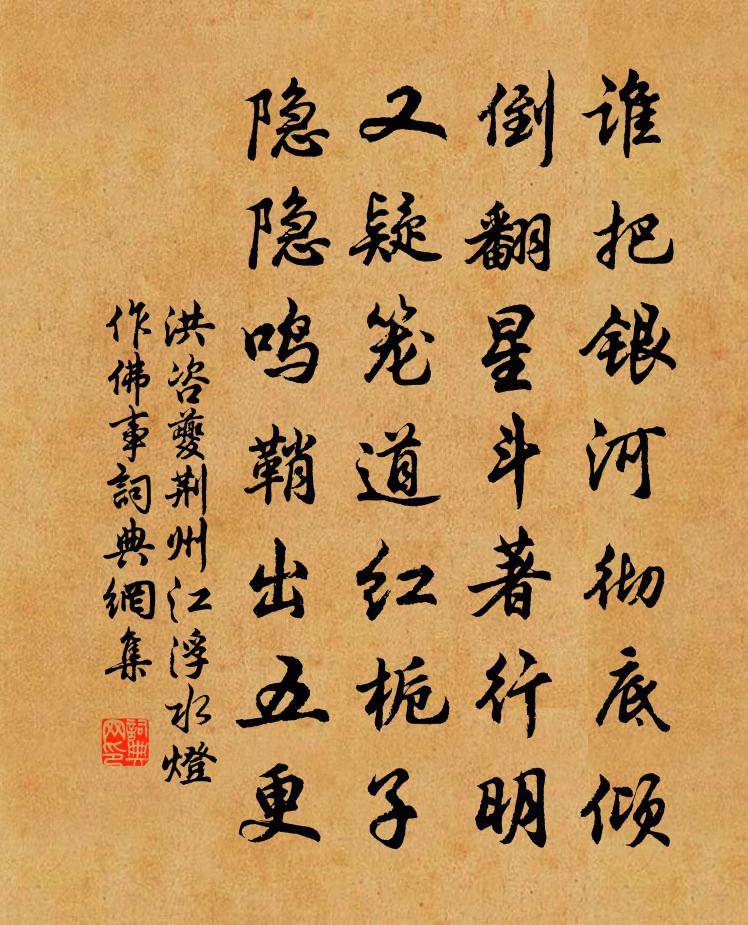 谁把银河彻底倾
倒翻星斗著行明
又疑笼道红栀子
隐隐鸣鞘出五更
洪咨夔荆州江浮水燈
作佛事詞典網集
詞典网印